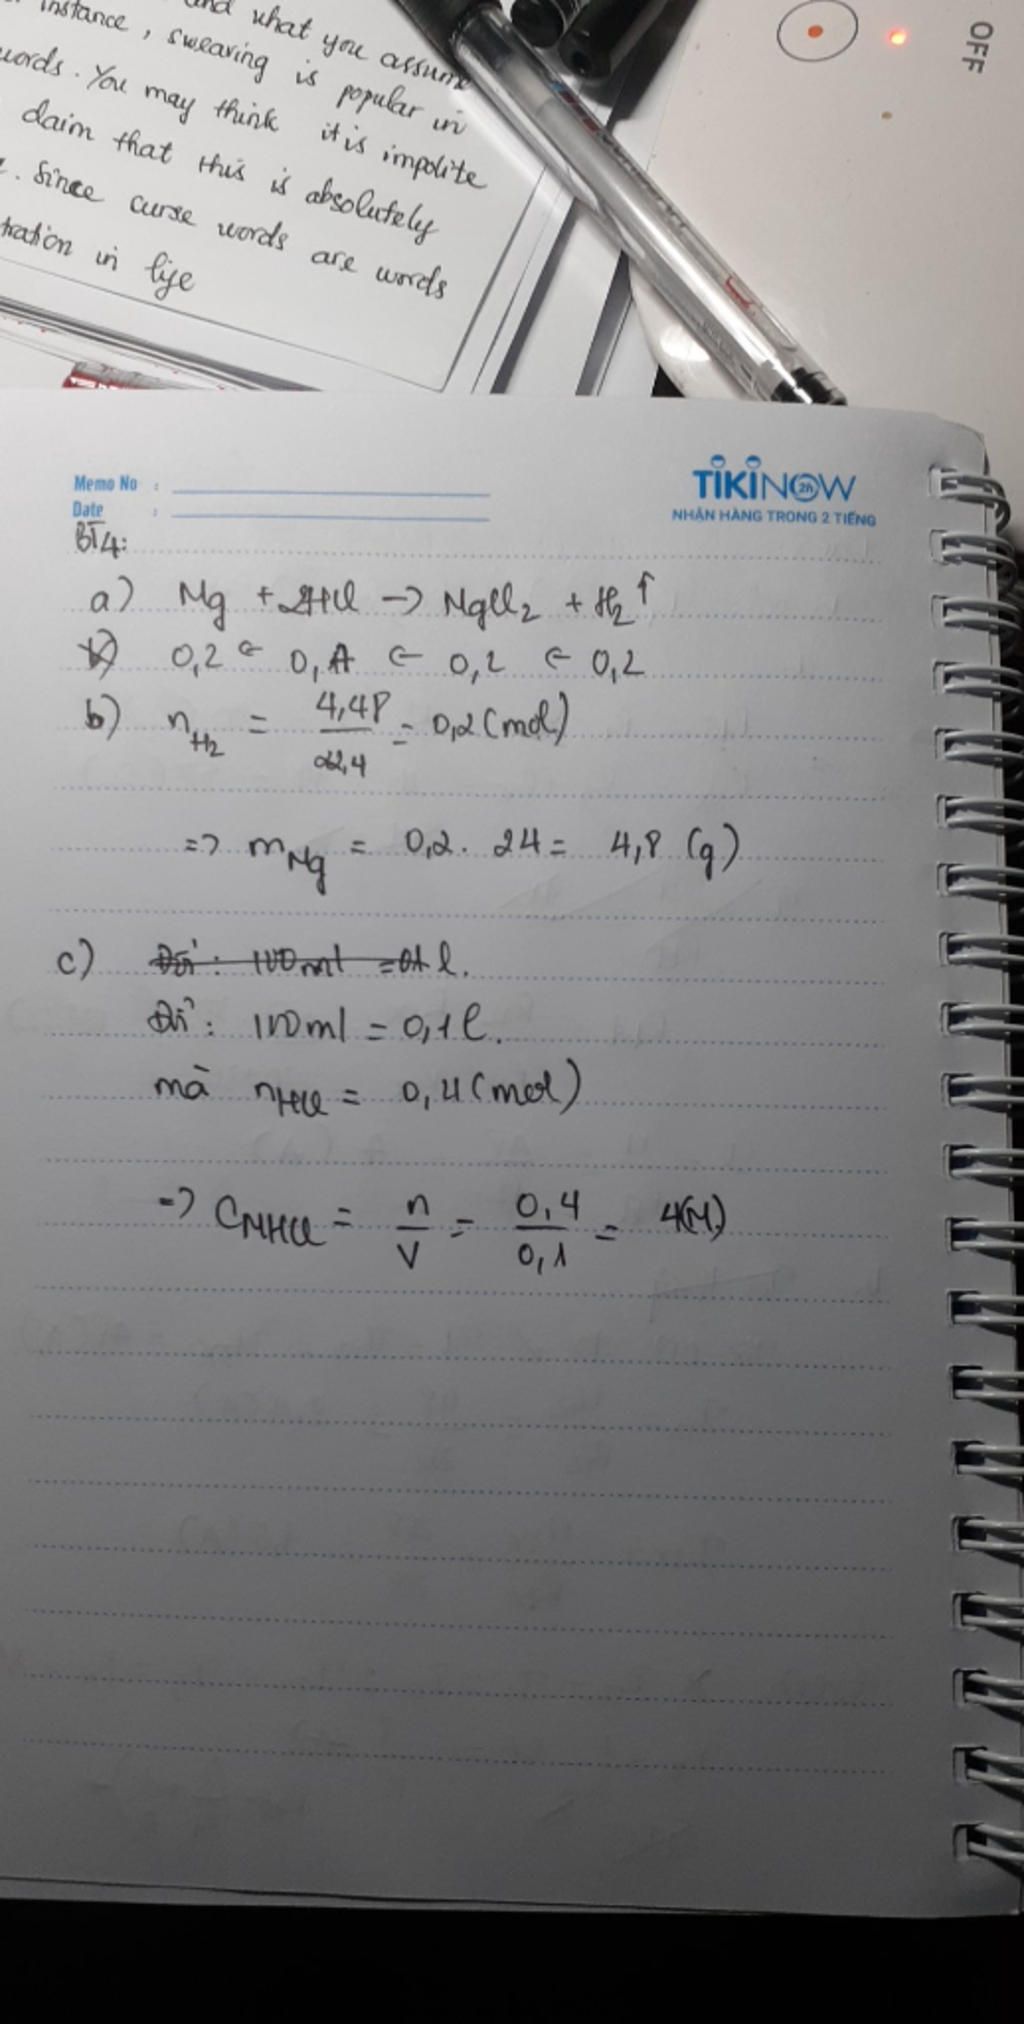 and what you assume
instance, swearing is popular in
words. You may think it is impolite
claim that this is absolutely
. Since curse words are words
tration in life
OFF
Memo No :
Date :
TIKINOW 2h
NHẬN HÀNG TRONG 2 TIẾNG
BT4:
a) Mg + 2HCl -> MgCl2 + H2↑
0,2 ← 0,4 ← 0,2 ← 0,2
b) nH2 = 4,48/22,4 = 0,2 (mol)
=> mMg = 0,2. 24 = 4,8 (g)
c) Đổi: 100ml = 0,1 l.
Đổi: 100ml = 0,1 l.
mà nHCl = 0,4 (mol)
=> CMHCl = n/V = 0,4/0,1 = 4(M)